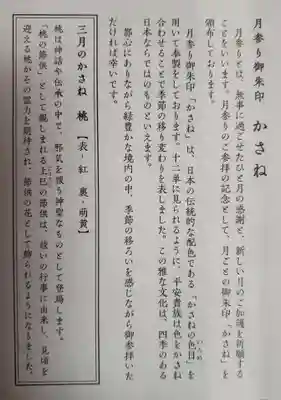 月参り御朱印 かさね
月参りとは、無事に過ごせたひと月の感謝と、新しい月のご加護を祈願する
ことをいいます。月参りのご参拝の記念として、月ごとの御朱印「かさね」を
頒布しております。
月参り御朱印「かさね」は、日本の伝統的な配色である「かさねの色目」を
いろめ
用いて奉製をしております。十二単に見られるように、平安貴族は色をかさね
合わせることで季節の移り変わりを表しました。この雅な文化は、四季のある
日本ならではのものといえます。
都心にありながら緑豊かな境内の中、季節の移ろいを感じながら御参拝いた
だければ幸いです。
三月のかさね 桃 【表-紅 裏-萌黄】
桃は神話や伝承の中で、邪気を祓う神聖なものとして登場します。
「桃の節供」として親しまれる上巳の節供は、祓いの行事に由来し、見頃を
迎える桃がその霊力を期待され、節供の花として飾られるようになりました。